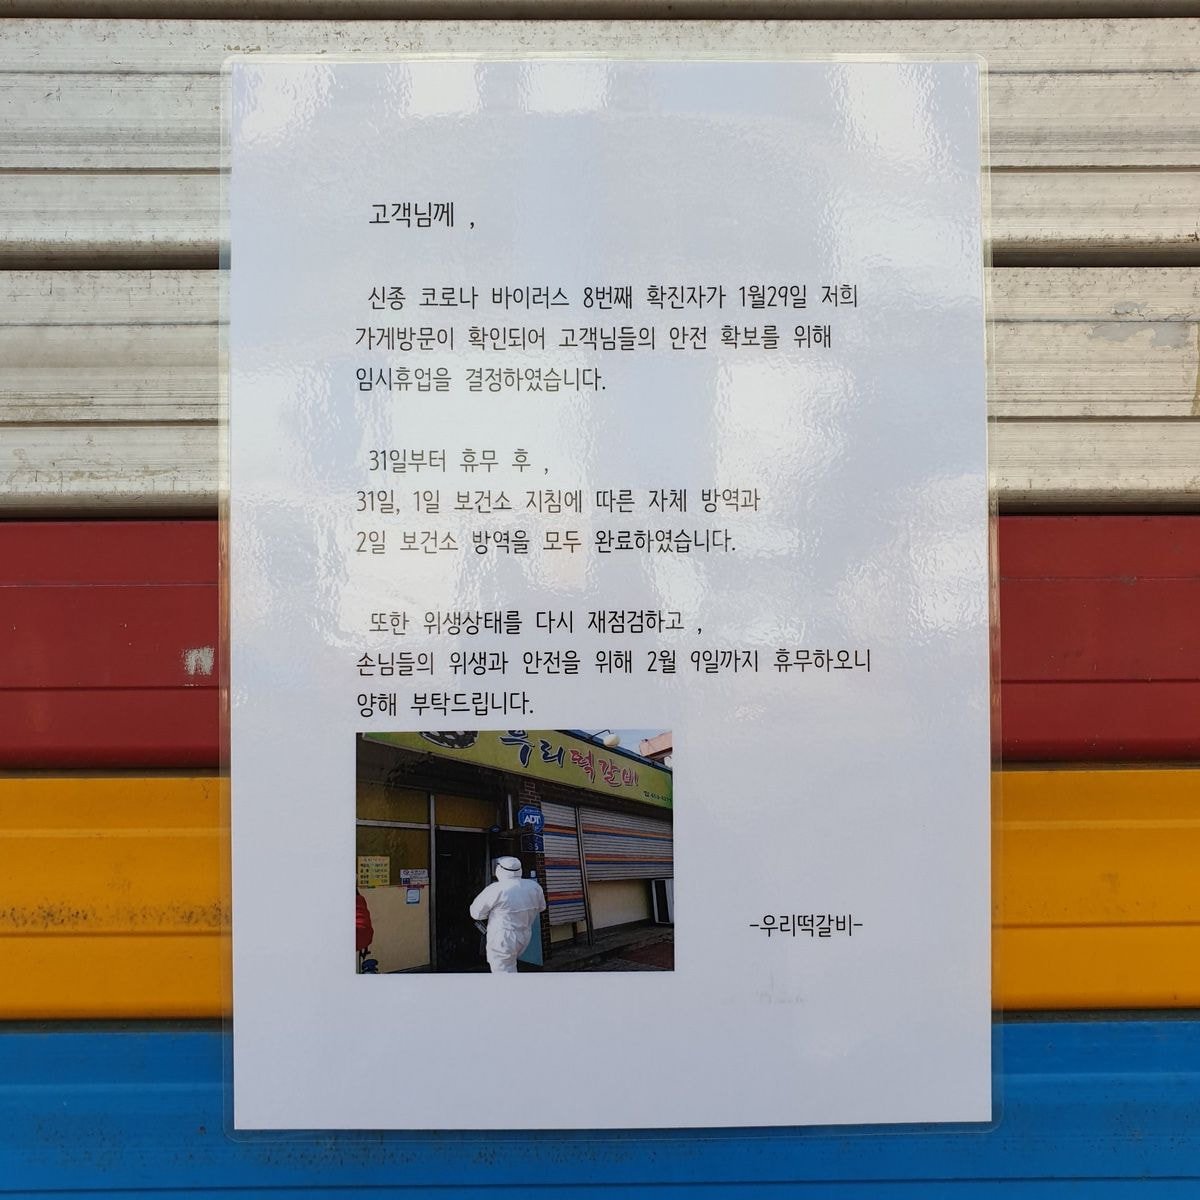 고객님께 ,
신종 코로나 바이러스 8번째 확진자가 1월29일 저희
가게방문이 확인되어 고객님들의 안전 확보를 위해
임시휴업을 결정하였습니다.
31일부터 휴무 후 ,
31일, 1일 보건소 지침에 따른 자체 방역과
2일 보건소 방역을 모두 완료하였습니다.
또한 위생상태를 다시 재점검하고 ,
손님들의 위생과 안전을 위해 2월 9일까지 휴무하오니
양해 부탁드립니다.
우리떡갈비
ADT
-우리떡갈비-